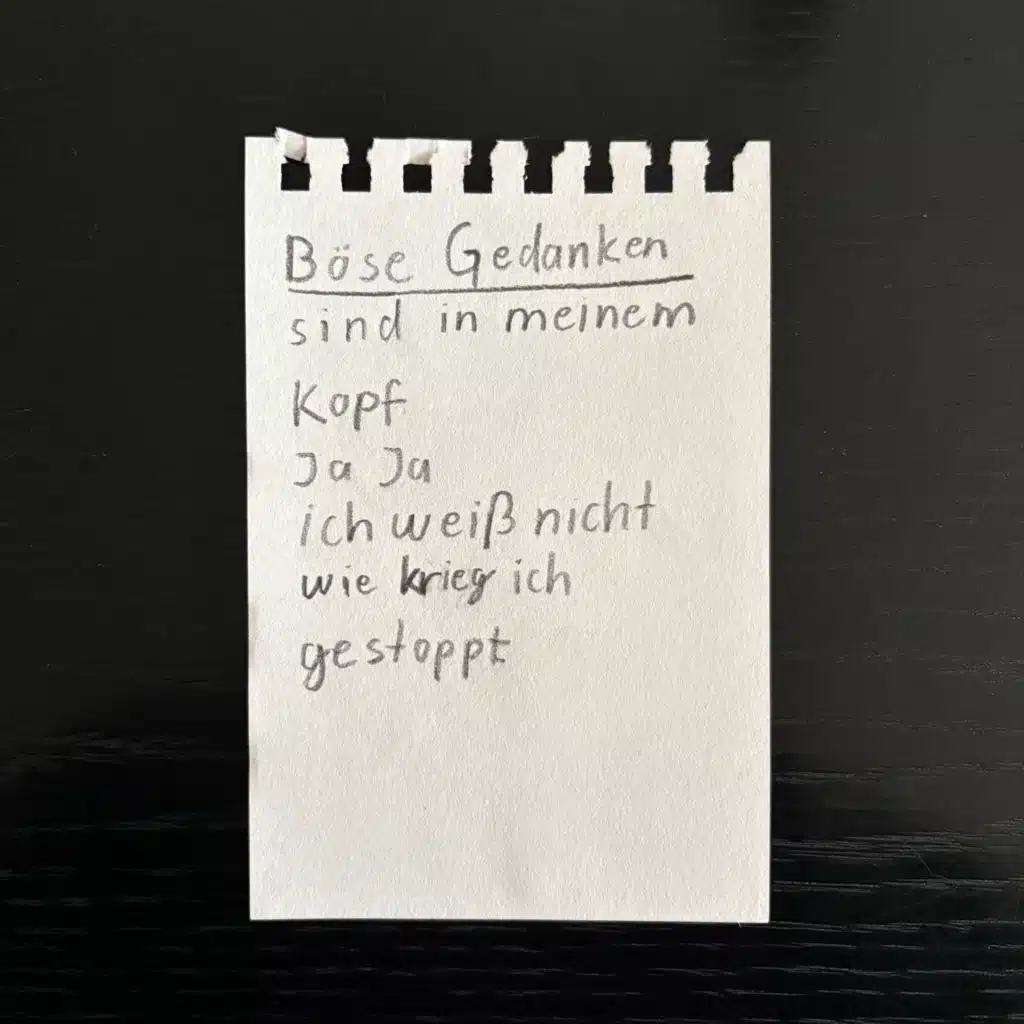 Böse Gedanken
sind in meinem
Kopf
Ja Ja
ich weiß nicht
wie krieg ich
gestoppt